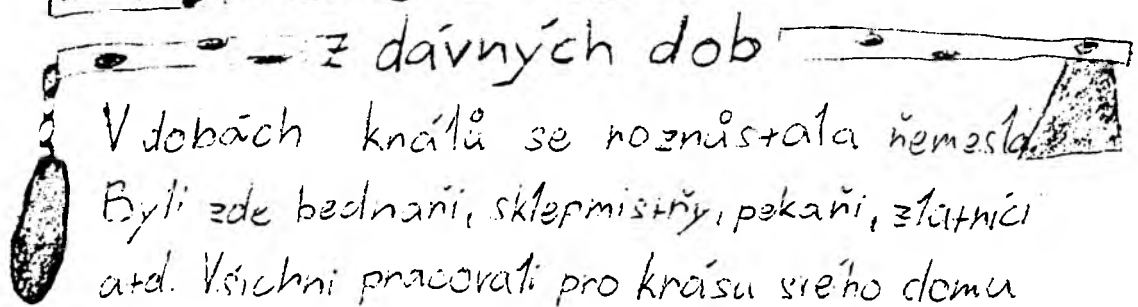 z dávných dob
V dobách králů se rozrůstala řemesla
Byli zde bednaři, sklepmistřy, pekaři, zlatníci
atd. Všichni pracovali pro krásu svého domu